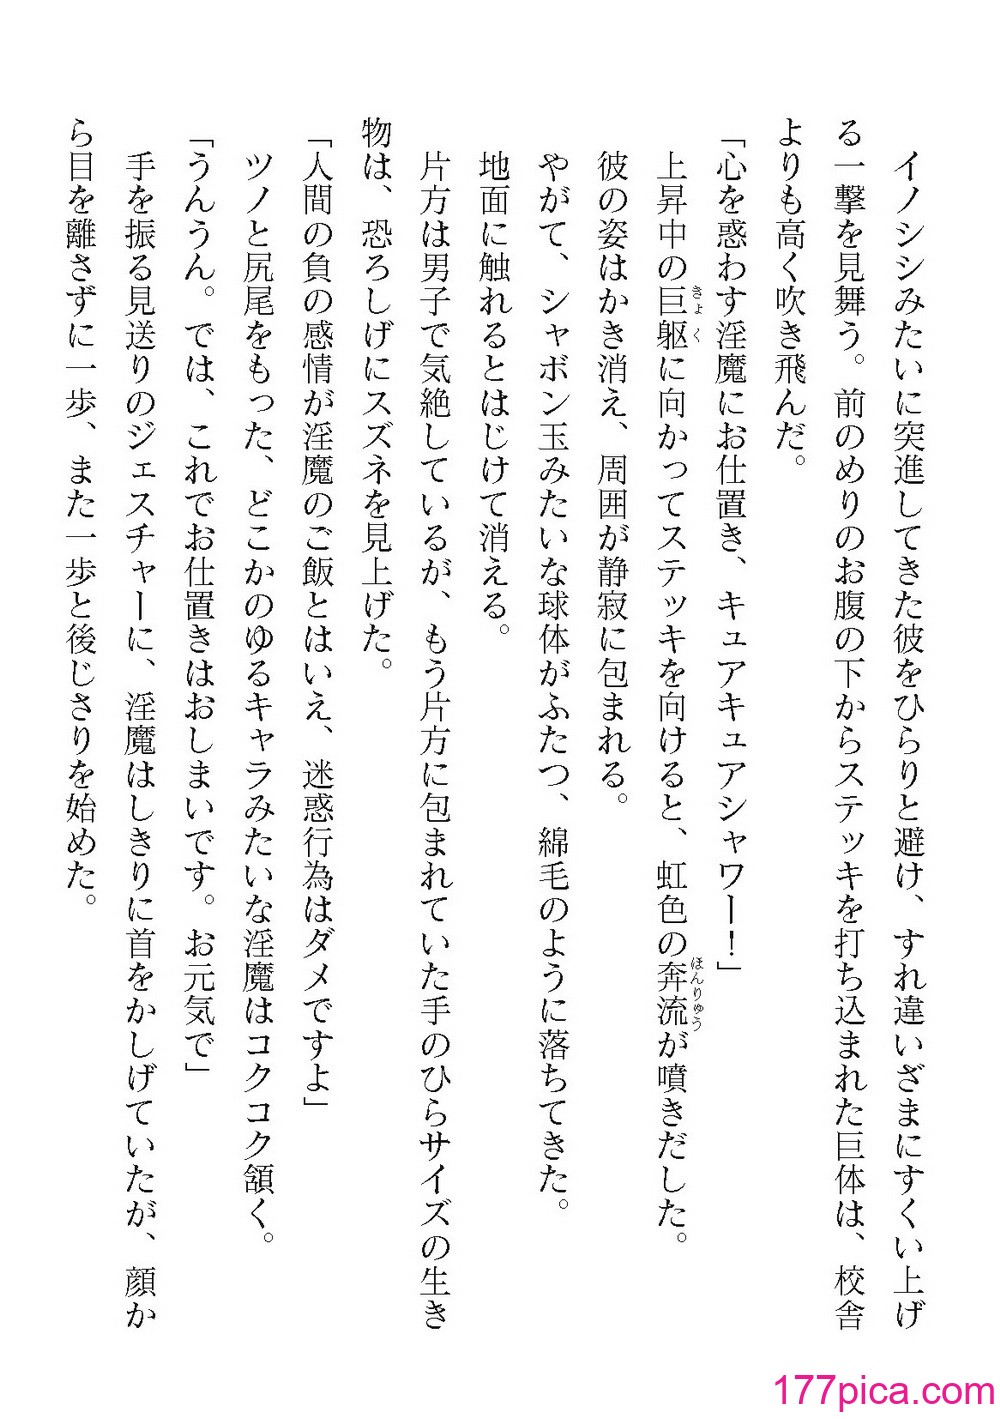 イノシシみたいに突進してきた彼をひらりと避け、すれ違いざまにすくい上げ
る一撃を見舞う。前のめりのお腹の下からステッキを打ち込まれた巨体は、校舎
よりも高く吹き飛んだ。
「心を惑わす淫魔にお仕置き、キュアキュアシャワー！」
上昇中の巨躯に向かってステッキを向けると、虹色の奔流が噴きだした。
きょく
ほんりゅう
彼の姿はかき消え、周囲が静寂に包まれる。
やがて、シャボン玉みたいな球体がふたつ、綿毛のように落ちてきた。
地面に触れるとはじけて消える。
片方は男子で気絶しているが、もう片方に包まれていた手のひらサイズの生き
物は、恐ろしげにスズネを見上げた。
「人間の負の感情が淫魔のご飯とはいえ、迷惑行為はダメですよ」
ツノと尻尾をもった、どこかのゆるキャラみたいな淫魔はコクコク頷く。
「うんうん。では、これでお仕置きはおしまいです。お元気で」
手を振る見送りのジェスチャーに、淫魔はしきりに首をかしげていたが、顔か
ら目を離さずに一歩、また一歩と後じさりを始めた。
177pica.com